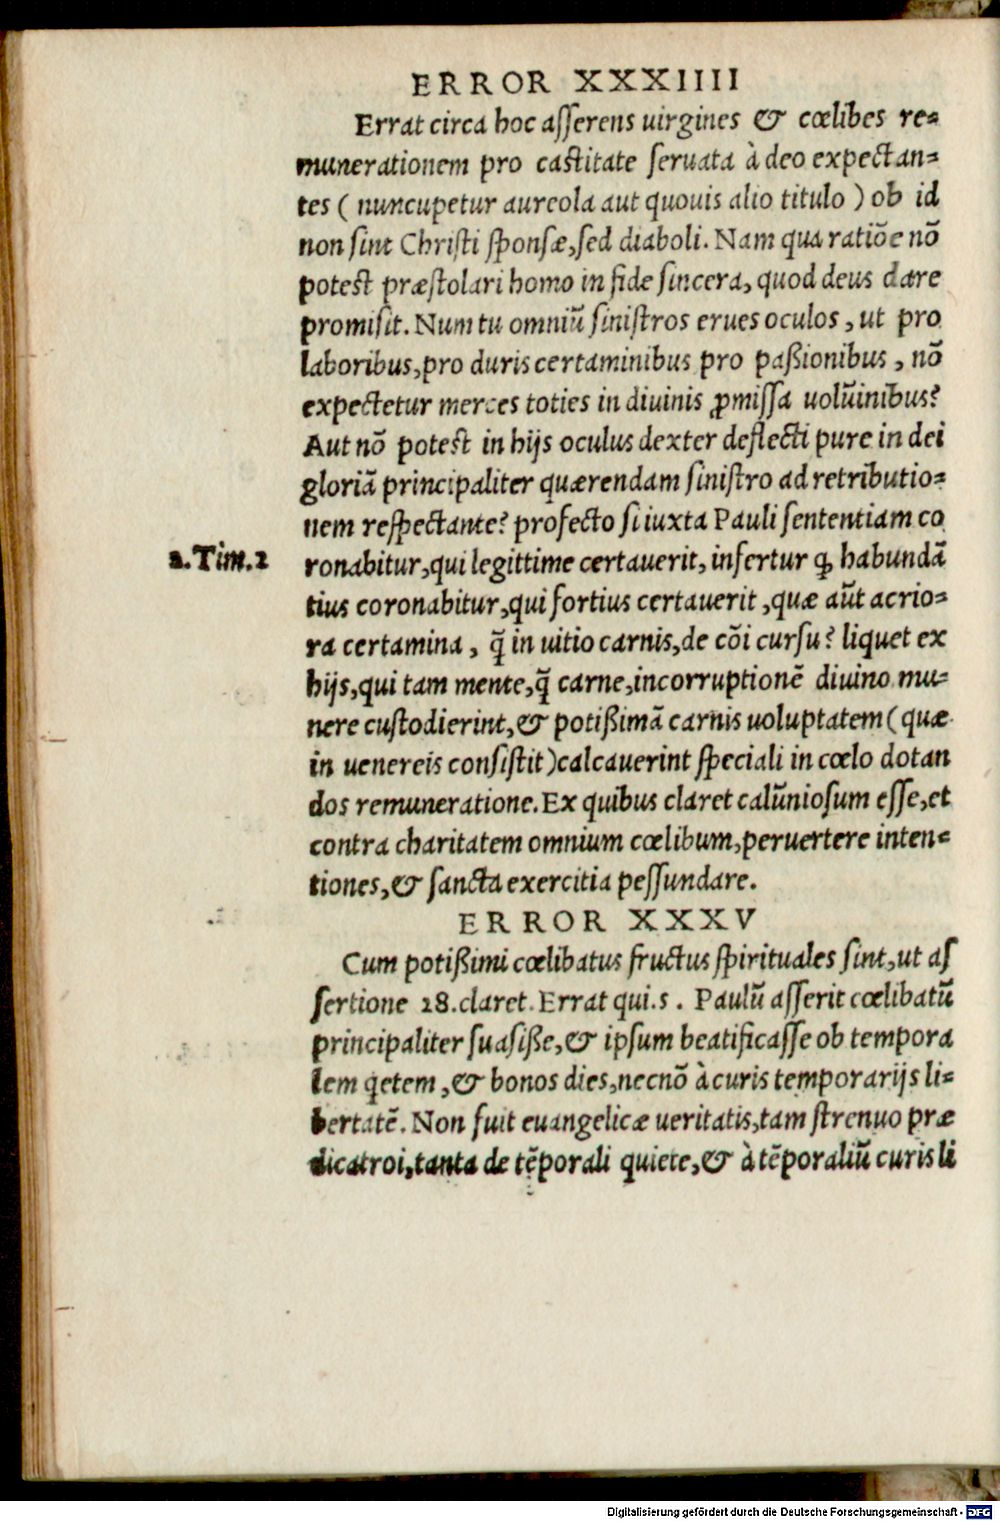 ERROR XXXIIII
Errat circa hoc aſſerens uirgines & cœlibes re=
munerationem pro caſtitate ſeruata à deo expectan=
tes ( nuncupetur aureola aut quouis alio titulo ) ob id
non ſint Chriſti ſponſæ, ſed diaboli. Nam qua ratiõe nõ
poteſt præſtolari homo in fide ſincera, quod deus dare
promiſit. Num tu omniũ ſiniſtros erues oculos, ut pro
laboribus, pro duris certaminibus pro paßionibus, nõ
expectetur merces toties in diuinis ꝓmiſſa uolũinibus?
Aut nõ poteſt in hijs oculus dexter deflecti pure in dei
gloriã principaliter quærendam ſiniſtro ad retributio=
nem reſpectante? profecto ſi iuxta Pauli ſententiam co
2. Tim. 2
ronabitur, qui legittime certauerit, infertur ꝙ habundã
tius coronabitur, qui fortius certauerit, quæ aũt acrio=
ra certamina, q̃ in uitio carnis, de cõi curſu? liquet ex
hijs, qui tam mente, q̃ carne, incorruptionẽ diuino mu=
nere cuſtodierint, & potißimã carnis uoluptatem (quæ
in uenereis conſiſtit) calcauerint ſpeciali in cœlo dotan
dos remuneratione. Ex quibus claret calũnioſum eſſe, et
contra charitatem omnium cœlibum, peruertere inten=
tiones, & ſancta exercitia peſſundare.
ERROR XXXV
Cum potißimi cœlibatus fructus ſpirituales ſint, ut aſ
ſertione 28. claret. Errat qui. s. Paulũ aſſerit cœlibatũ
principaliter ſuaſiße, & ipſum beatificaſſe ob tempora
lem q̇etem, & bonos dies, necnõ à curis temporarijs li=
bertatẽ. Non fuit euangelicæ ueritatis, tam ſtrenuo præ
dicatroi, tanta de tẽporali quiete, & à tẽporaliũ curis li
Digitalisierung gefördert durch die Deutsche Forschungsgemeinschaft - DFG